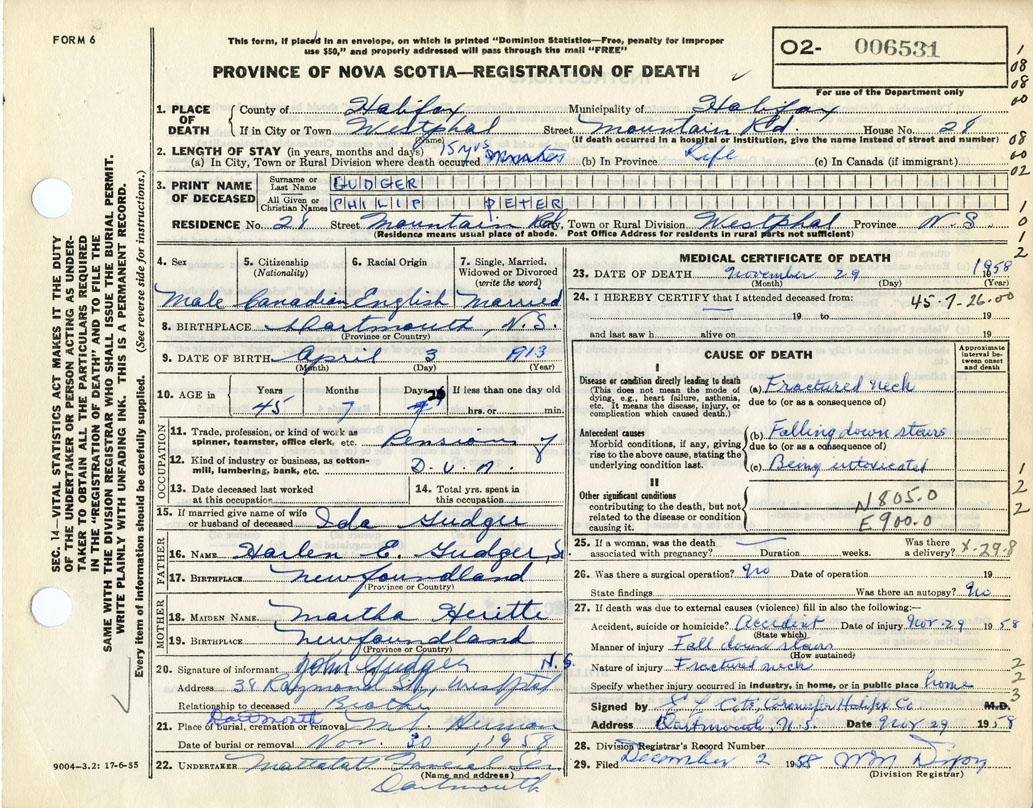 FORM 6
This form, if placed in an envelope, on which is printed "Dominion Statistics—Free, penalty for improper
use $50," and properly addressed will pass through the mail "FREE"
PROVINCE OF NOVA SCOTIA—REGISTRATION OF DEATH
02- 006531
For use of the Department only
1 08 08 00
SEC. 14—VITAL STATISTICS ACT MAKES IT THE DUTY
OF THE UNDERTAKER OR PERSON ACTING AS UNDER-
TAKER TO OBTAIN ALL THE PARTICULARS REQUIRED
IN THE "REGISTRATION OF DEATH" AND TO FILE THE
SAME WITH THE DIVISION REGISTRAR WHO SHALL ISSUE THE BURIAL PERMIT.
WRITE PLAINLY WITH UNFADING INK. THIS IS A PERMANENT RECORD.
Every item of information should be carefully supplied. (See reverse side for instructions.)
1. PLACE OF DEATH
County of Halifax Municipality of Halifax
If in City or Town Westphal Street Mountain Rd. House No. 28
(Name) (If death occurred in a hospital or institution, give the name instead of street and number)
08 00 02
2. LENGTH OF STAY (in years, months and days)
(a) In City, Town or Rural Division where death occurred 15 yrs (b) In Province Life (c) In Canada (if immigrant)
3. PRINT NAME OF DECEASED
Surname or Last Name GUDGER
All Given or Christian Names PHILIP PETER
RESIDENCE No. 28 Street Mountain Rd, City, Town or Rural Division Westphal Province N.S.
(Residence means usual place of abode. Post Office Address for residents in rural parts not sufficient)
1 0 1 2
4. Sex 5. Citizenship (Nationality) 6. Racial Origin 7. Single, Married, Widowed or Divorced (write the word)
Male Canadian English Married
8. BIRTHPLACE Dartmouth, N.S.
(Province or Country)
9. DATE OF BIRTH April 3 1913
(Month) (Day) (Year)
10. AGE in Years Months Days If less than one day old
45 7 26 hrs. or min.
OCCUPATION
11. Trade, profession, or kind of work as
spinner, teamster, office clerk, etc. Pensioner
12. Kind of industry or business, as cotton-
mill, lumbering, bank, etc. D.V.A.
13. Date deceased last worked
at this occupation
14. Total yrs. spent in
this occupation
15. If married give name of wife
or husband of deceased Ida Gudger
FATHER
16. NAME Harlen E. Gudger, Sr.
17. BIRTHPLACE Newfoundland
(Province or Country)
MOTHER
18. MAIDEN NAME Martha
19. BIRTHPLACE Newfoundland
(Province or Country)
20. Signature of informant John Gudger N.S.
Address 38 Raymond St., Westphal
Relationship to deceased Brother
Dartmouth
21. Place of burial, cremation or removal Mt. Hermon
Date of burial or removal Nov. 30, 1958
22. UNDERTAKER Mattatall's Funeral Ser.
(Name and address)
Dartmouth
9004-3.2: 17-6-55
MEDICAL CERTIFICATE OF DEATH
23. DATE OF DEATH November 29 1958
(Month) (Day) (Year)
24. I HEREBY CERTIFY that I attended deceased from: 45-7-26.00
19 to 19
and last saw h alive on 19
CAUSE OF DEATH
Approximate interval between onset and death
I
Disease or condition directly leading to death
(This does not mean the mode of
dying, e.g., heart failure, asthenia,
etc. It means the disease, injury, or
complication which caused death.)
(a) Fractured Neck
due to (or as a consequence of)
Antecedent causes
Morbid conditions, if any, giving
rise to the above cause, stating the
underlying condition last.
(b) Falling down stairs
due to (or as a consequence of)
(c) Being intoxicated
II
Other significant conditions
contributing to the death, but not
related to the disease or condition
causing it.
N805.0
E900.0
1 2 2
25. If a woman, was the death
associated with pregnancy? Duration weeks. Was there
a delivery? X-29-8
26. Was there a surgical operation? No Date of operation 19
State findings Was there an autopsy? No
27. If death was due to external causes (violence) fill in also the following:—
Accident, suicide or homicide? Accident Date of injury Nov. 29 1958
(State which)
Manner of injury Fall down stairs
(How sustained)
Nature of injury Fractured neck
Specify whether injury occurred in industry, in home, or in public place home
2 2 3
Signed by Coroner for Halifax Co. M.D.
Address Dartmouth, N.S. Date Nov 29 1958
28. Division Registrar's Record Number
29. Filed December 2 1958
(Division Registrar)